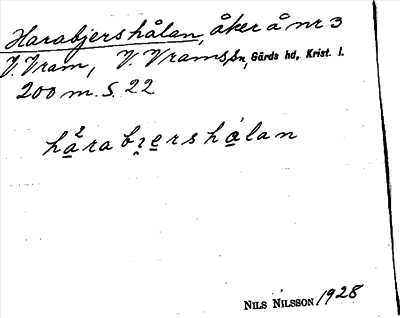 Harabjershålan, åker å nr 3
V. Vram, V. Vrams sn, Gärds hd, Krist. l.
200 m. S. 22
hα̲²rabi̯e̲rshά̲lan
NILS NILSSON 1928